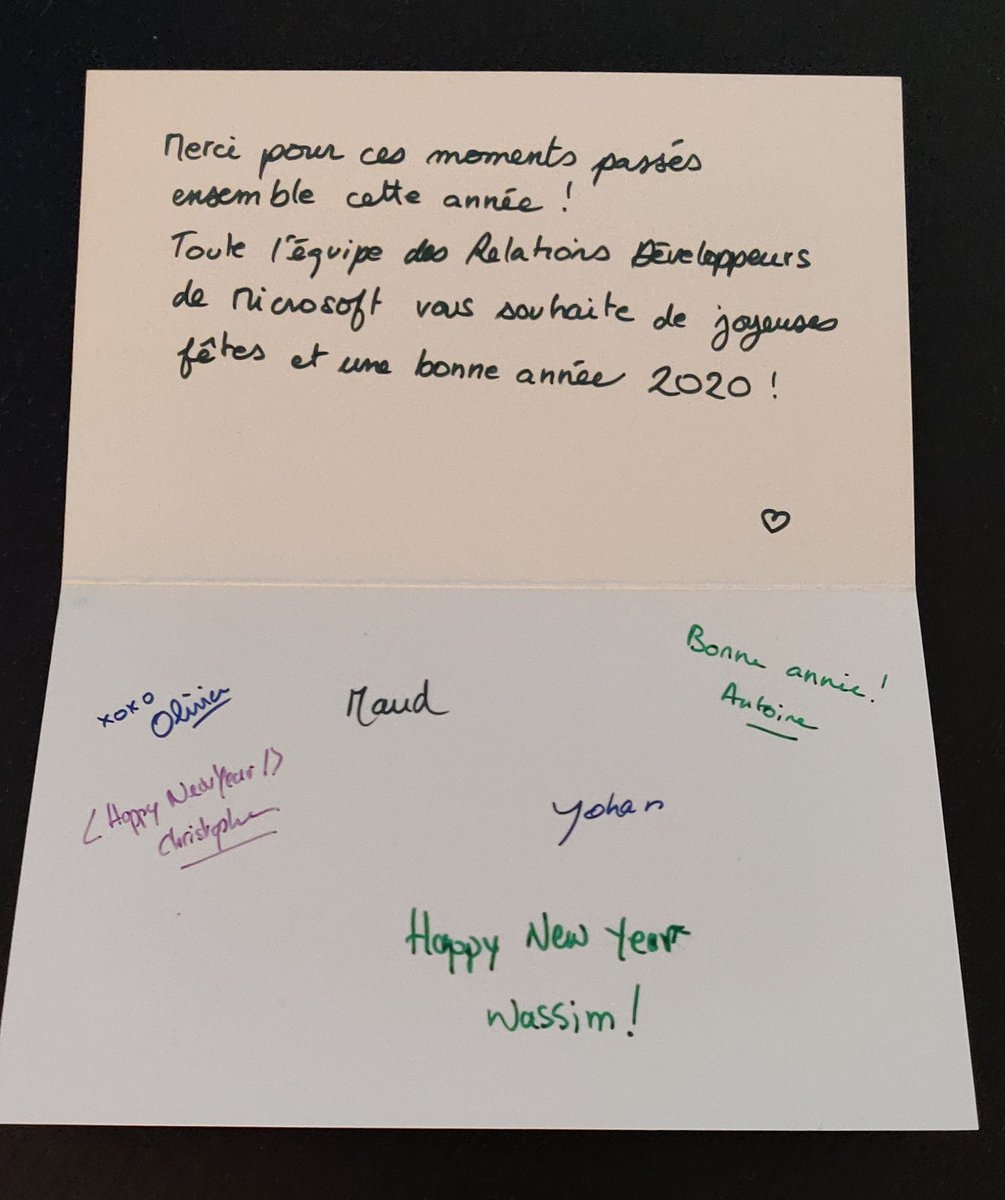 Merci pour ces moments passés
ensemble cette année !
Toute l'équipe des Relations Développeurs
de Microsoft vous souhaite de joyeuses
fêtes et une bonne année 2020 !
♡
xoxo
Olivier
Maud
Bonne année !
Antoine
<Happy New Year !/>
Christophe
Yohan
Happy New Year
Wassim !